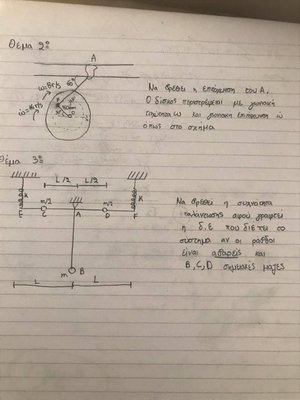 Θέμα 2ο
A
60°
ω=8r/s
Να βρεθεί η επιτάχυνση του Α.
Ο δίσκος περιστρέφεται με γωνιακή
ταχύτητα ω και γωνιακή επιτάχυνση ω̇
όπως στο σχήμα
Θέμα 3ο
L/2 L/2
k k
m/2 m/2
E C A D F
m B
L L
Να βρεθεί η συχνότητα
ταλάντωσης αφού γραφεί
η δ.ε που διέπει το
σύστημα αν οι ράβδοι
είναι αβαρείς και
B, C, D σημειακές μάζες